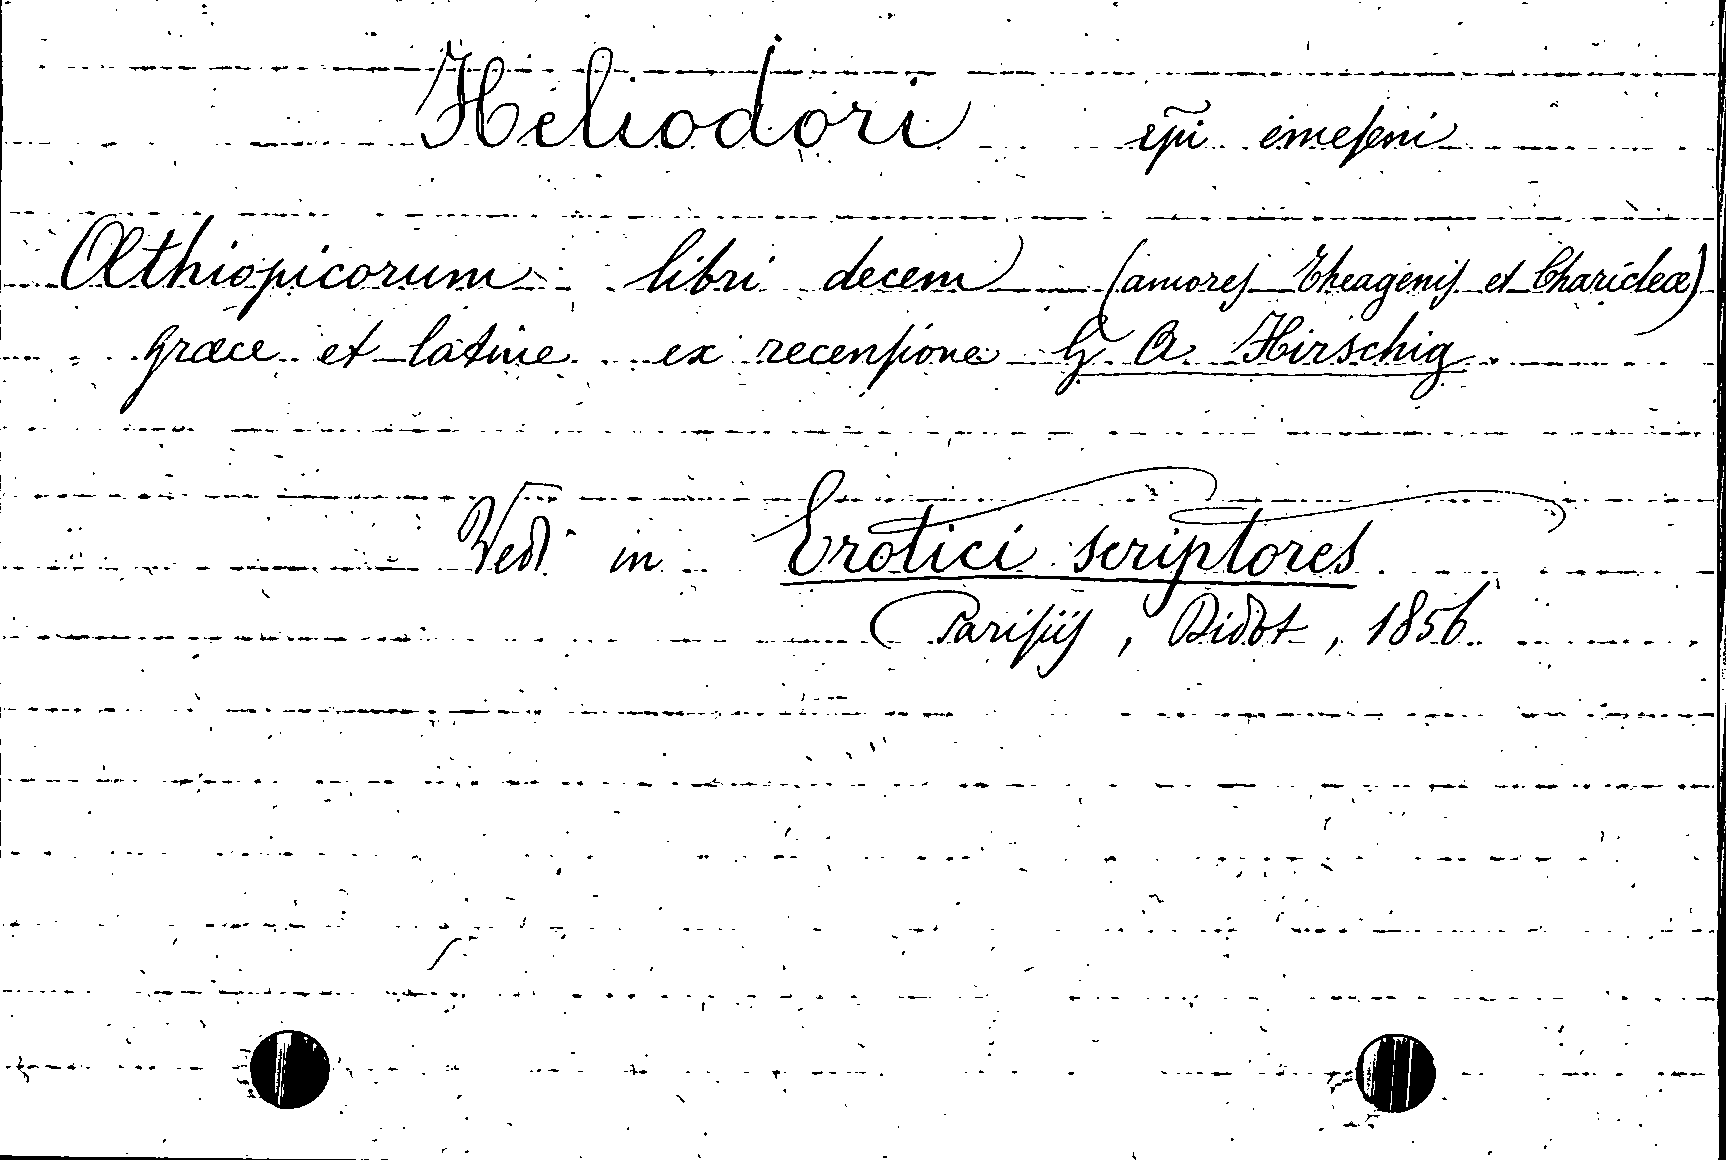 Heliodori ep̃i emeseni
Æthiopicorum libri decem (amores Theagenis et Charicleæ)
græce et latine ex recensione G. A. Hirschig.
Vedi in Erotici scriptores
Parisiis, Didot, 1856.